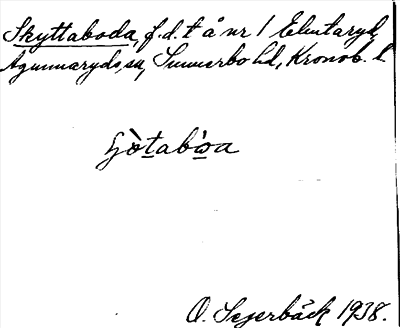 Skyttaboda, f.d. t å nr 1 Elmtaryd,
Agunnaryds sn, Sunnerbo hd, Kronob. l
O. Segerbäck 1938.